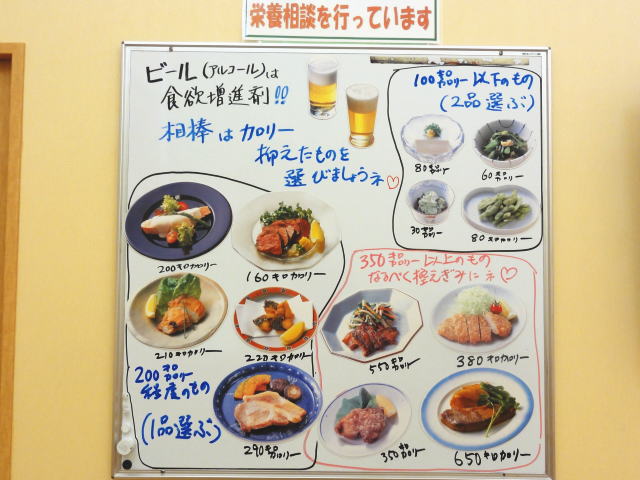 栄養相談を行っています
ビール(アルコール)は
食欲増進剤!!
相棒はカロリー
抑えたものを
選びましょうネ♡
100キロカロリー以下のもの
(2品選ぶ)
80キロカロリー
60キロカロリー
30キロカロリー
80キロカロリー
200キロカロリー
160キロカロリー
210キロカロリー
220キロカロリー
200キロカロリー
程度のもの
(1品選ぶ)
290キロカロリー
350キロカロリー以上のもの
なるべく控えぎみにネ♡
550キロカロリー
380キロカロリー
350キロカロリー
650キロカロリー